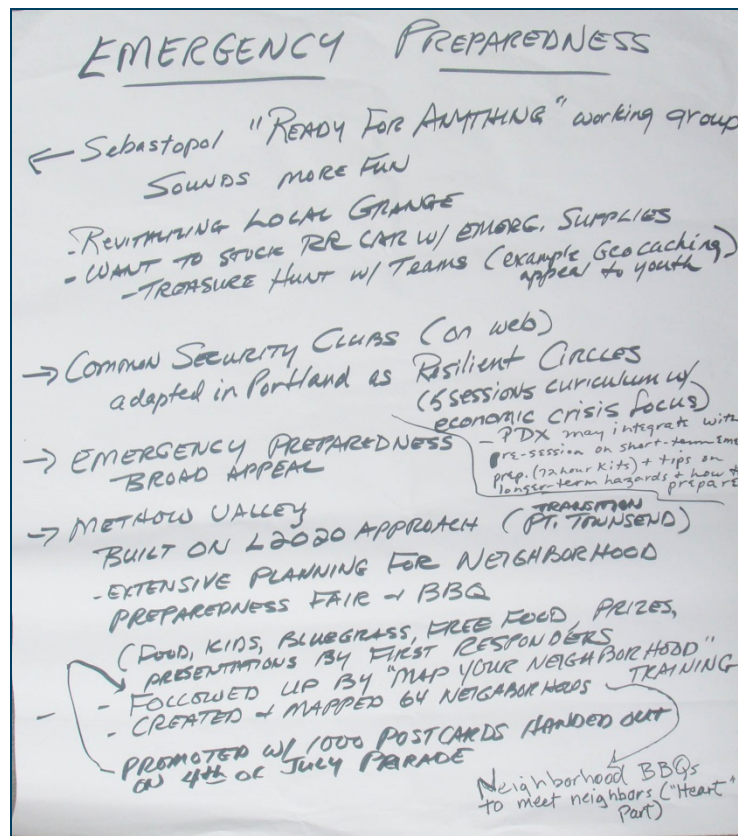 EMERGENCY PREPAREDNESS
← Sebastopol "READY FOR ANYTHING" working group
SOUNDS MORE FUN
- REVITALIZING LOCAL GRANGE
- WANT TO STOCK RR CAR W/ EMERG. SUPPLIES
- TREASURE HUNT W/ TEAMS (example Geocaching)
appeal to youth
→ COMMON SECURITY CLUBS (on web)
adapted in Portland as Resilient CIRCLES
(5 sessions curiculum w/
economic crisis focus)
- PDX may integrate with
pre-session on short-term Eme
prep. (72 hour kits) + tips on
longer-term hazards + how to
prepare
→ EMERGENCY PREPAREDNESS
BROAD APPEAL
→ METHOW VALLEY
TRANSITION
BUILT ON L2020 APPROACH (PT. TOWNSEND)
- EXTENSIVE PLANNING FOR NEIGHBORHOOD
PREPAREDNESS FAIR + BBQ
(FOOD, KIDS, BLUEGRASS, FREE FOOD, PRIZES,
PRESENTATIONS BY FIRST RESPONDERS
- FOLLOWED UP BY "MAP YOUR NEIGHBORHOOD"
TRAINING
- CREATED + MAPPED 64 NEIGHBORHOODS
- PROMOTED W/ 1000 POSTCARDS HANDED OUT
ON 4th OF JULY PARADE
Neighborhood BBQs
to meet neighbors ("Heart"
Part)